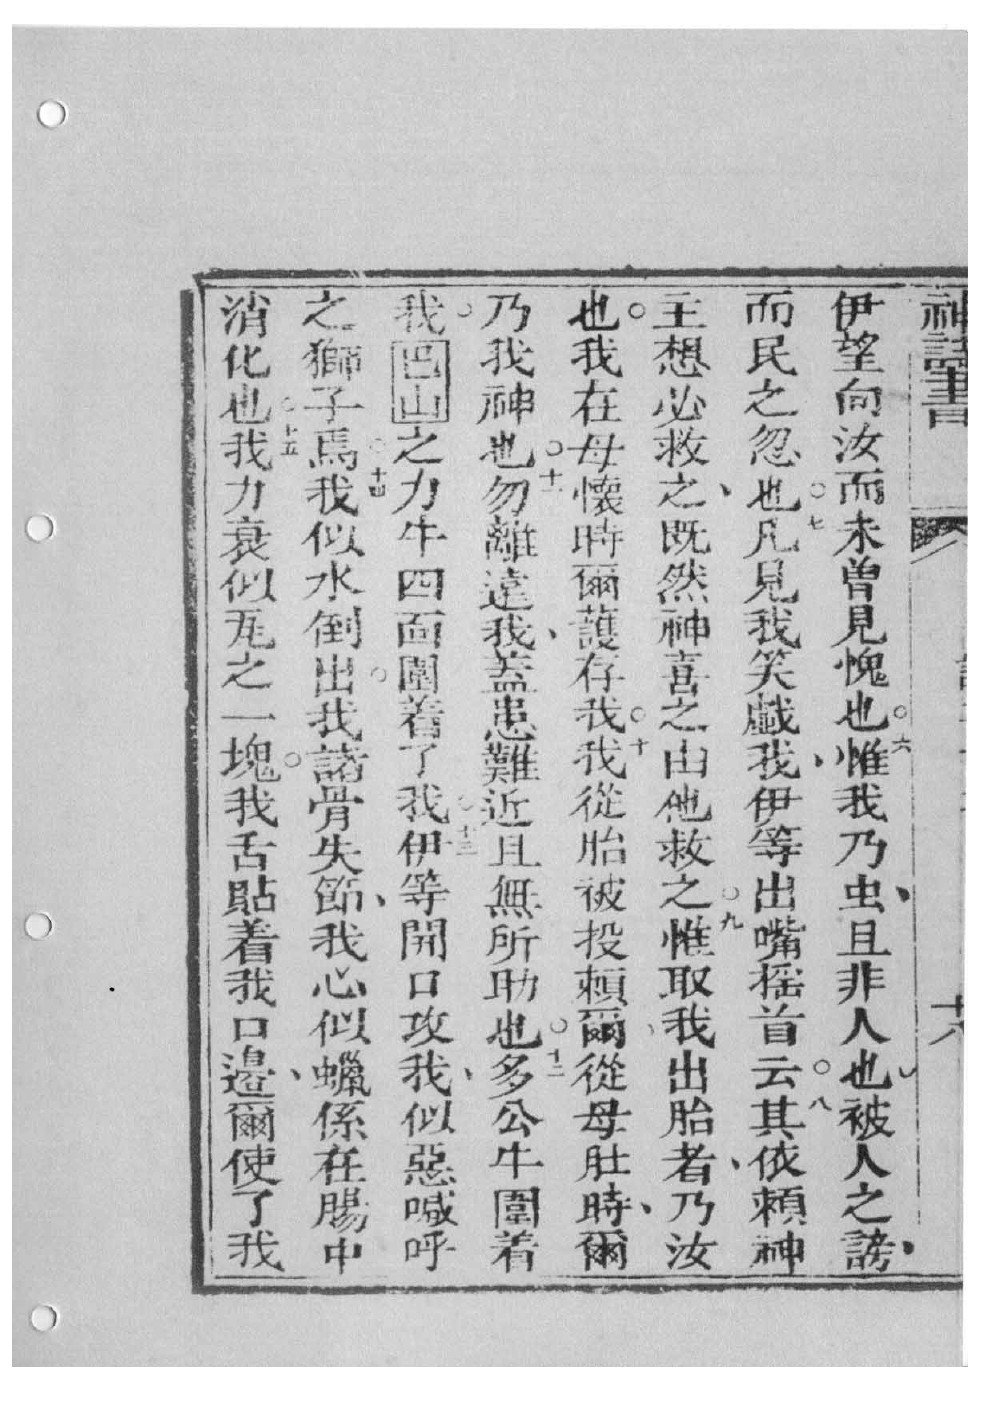 神詩書
十八
伊望向汝而未曾見愧也○六惟我乃虫、且非人也、被人之謗、
而民之忽也○七凡見我笑戲我、伊等出嘴摇首云○八其依賴神
主想必救之、既然神喜之由他救之○九惟取我出胎者、乃汝
也○我在母懷時爾護存我○十我從胎被投賴爾、從母肚時、爾
乃我神也○十一勿離遠我、蓋患難近且無所助也○十二多公牛圍着
我○巴山之力牛四面圍着了我○十三伊等開口攻我、似惡喊呼
之獅子焉○十四我似水倒出○我諸骨失節、我心似蠟係在腸中
消化也○十五我力衰似瓦之一塊○我舌貼着我口邉、爾使了我